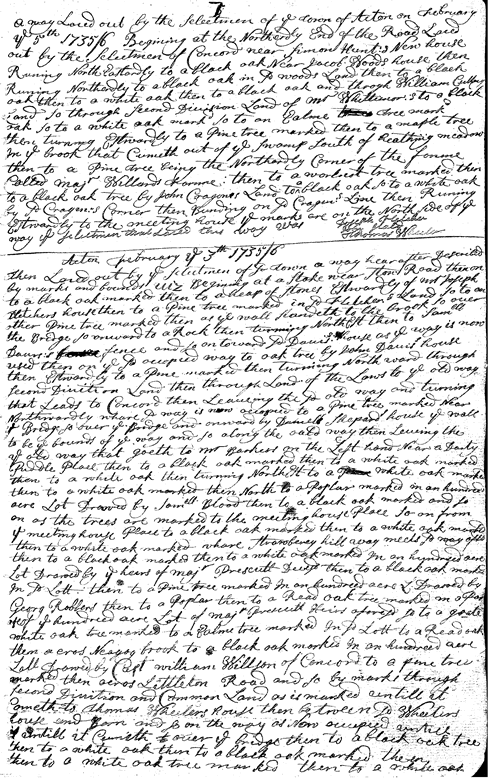 7
a way Laied out by the Selectmen of ye Town of Acton on February
ye 5th 1735/6 Begining at the Northardly End of the Road Laied
out by the Selectmen of Concord near Simon Hunt's New house
Runing North Eastardly to a black oak Near Jacob Woods house then
Runing Northardly to a black oak in sd woods Land then to a black
oak then to a white oak then to a black oak and through William
Land so through Second Division Land of mr to a black
oak so to a white oak mark so to an Ealme tree mark
then turning Eastwardly to a Pine tree marked then to a maple tree
In ye brook that Cumeth out of ye Swamp South of heathy meadow
then to a Pine tree being the Northardly Corner of the forme
Called majr Willards forme: then to a tree marked then
to a black oak tree by John Cragens Land to a black oak so to a white oak
by sd Cragens Corner then Bending on sd Cragens Line then Runing
Eastwardly to the meeting house ye marks are on the North side of ye
way ye Selectmen that Laied this way was
Thomas Wheeler
Acton february ye 3th 1735/6
then Laied out by ye Selectmen of sd Town a way hear after Descrited
by marks and bounds viz Begining at a Stake near Stow Road then on
to a black oak marked then to a heap of stones Eastwardly of mr Joseph
fletchers house then to a Pine tree marked in sd Fletchers Land so to an
other Pine tree marked then as ye wall Standeth to the brook so over
the Bridg so onward to a Rock then turning North then to Samll
Davis's fence and so on toward sd Davis's House as ye way is now
used then on ye sd occupied way to oak tree by John Davis house
then Eastwardly to a Pine marked then turning North ward through
Second Division Land then through Land of the Laws to ye old way
that Leads to Concord then Leaving the sd old way and turning
Northwardly where sd way is now occupied to a Pine tree marked Near
ye Bridg so over ye Bridge and onward by Daniell Shepards house ye wall
to be ye bounds of ye way and so along the oald way then Leving the
ye old way that goeth to mr Barkers on the Left hand Near a Durty
Puddle Place then to a black oak marked then to a white oak marked
then to a white oak then turning North to a white oak marked
then to a white oak marked then North to a Poplar marked in an hundred
acre Lot Drawed by Samll Blood then to a black oak marked and so
on as the trees are marked to the meeting house Place So on from
ye meeting house Place to a black oak marked then to a white oak marked
then to a white oak marked where Strawberey hill way meets sd way also
then to a black oak marked then to a white oak marked In an hundred acre
Lot Drawed by ye heirs of majr Prescutt Decsd then to a black oak marked
In sd Lott then to a Pine tree marked In an hundred acre L Drawed by
Georg Robbers then to a Poplar then to a Read oak tree marked in a Part
of ye hundred acre Lot of majr Prescutt Heirs aforesd so to a
white oak tree marked to a Ealme tree marked In sd Lott to a Read oak
them acros Nagog brook to a black oak marked In an hundred acre
Lott Drawed by Capt william Willson of Concord to a pine tree
marked then acros Littleton Road and so by marks through
Second Division and Common Land as is marked untill it
cometh to thomas Wheelers house then between sd Wheelers
house and Barn and so on the way as Now occupied
untill it Cumeth to over ye bridge then to a black oak tree
then to a white oak then to a black oak marked then
then to a white oak tree marked then to a white oak